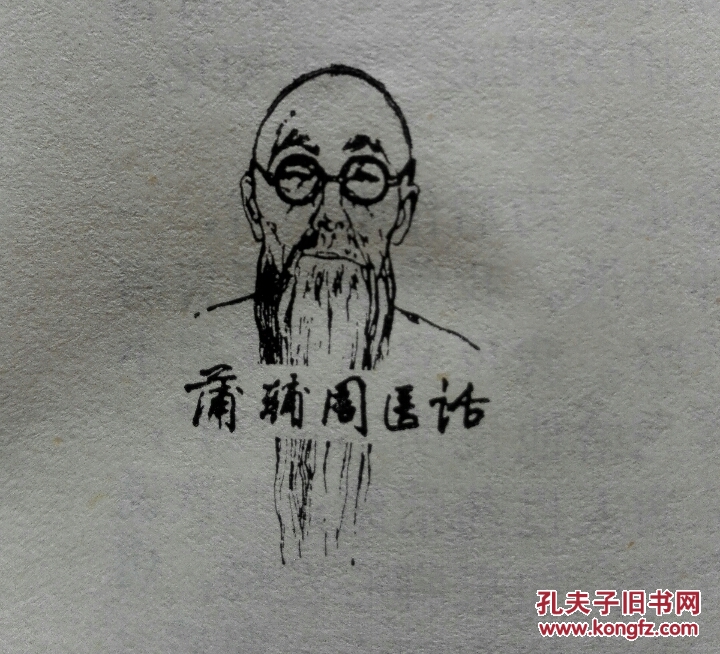 蒲辅周医话
孔夫子旧书网
www.kongfz.com